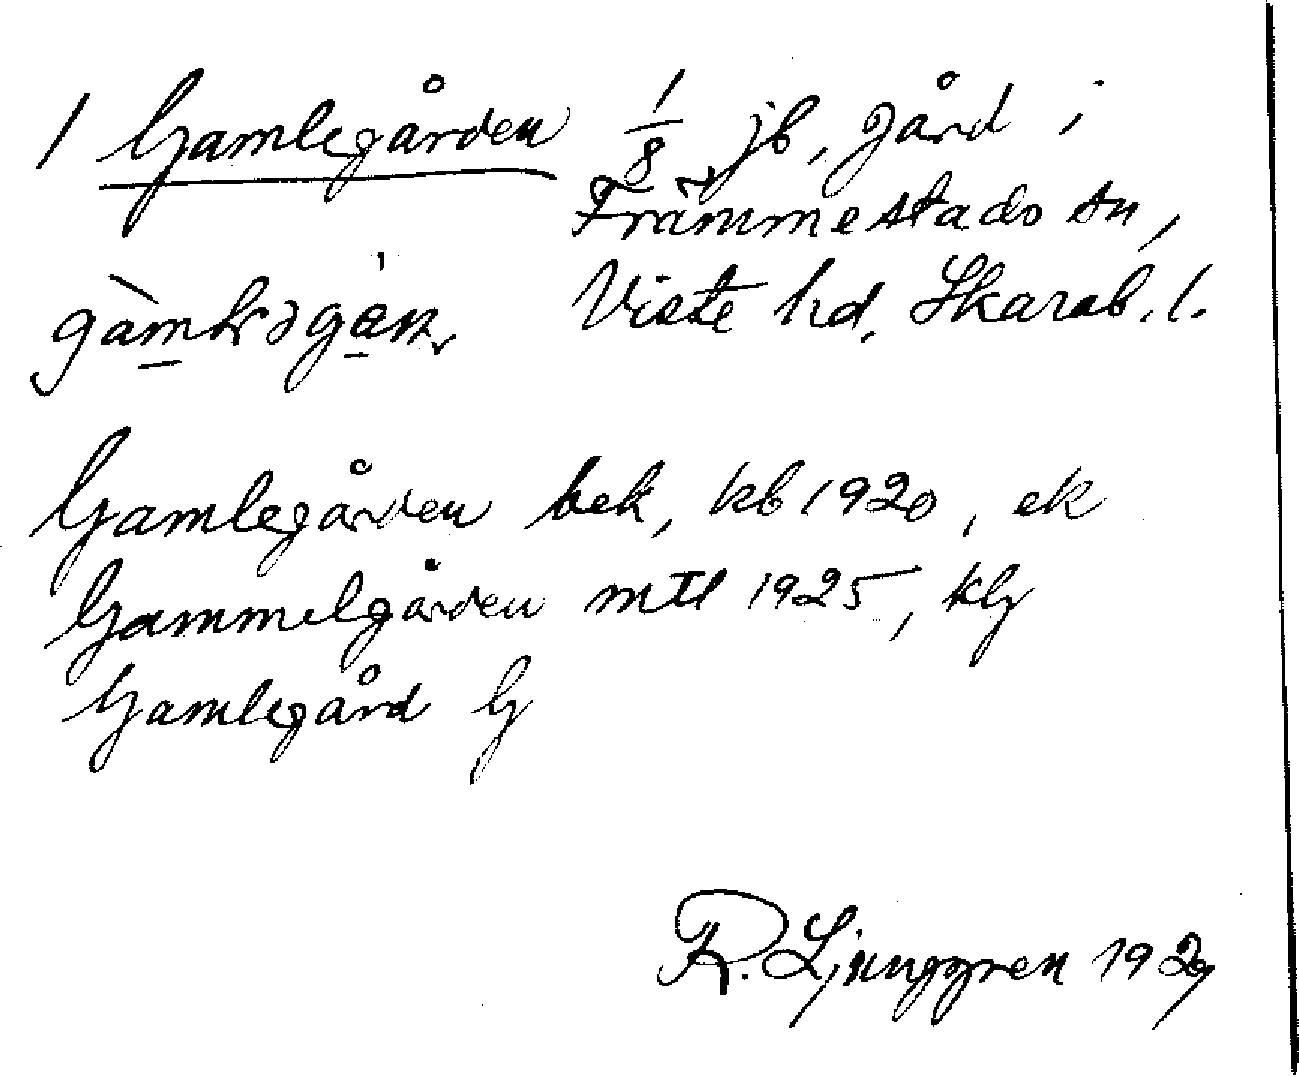 1 Gamlegården 1/8 jb, gård i
Främmestads sn,
Viste hd, Skarab. l.
Gamlegården bek, kb 1920, ek
Gammelgården mtl 1925, kG
Gamlegård G
R. Ljunggren 1929